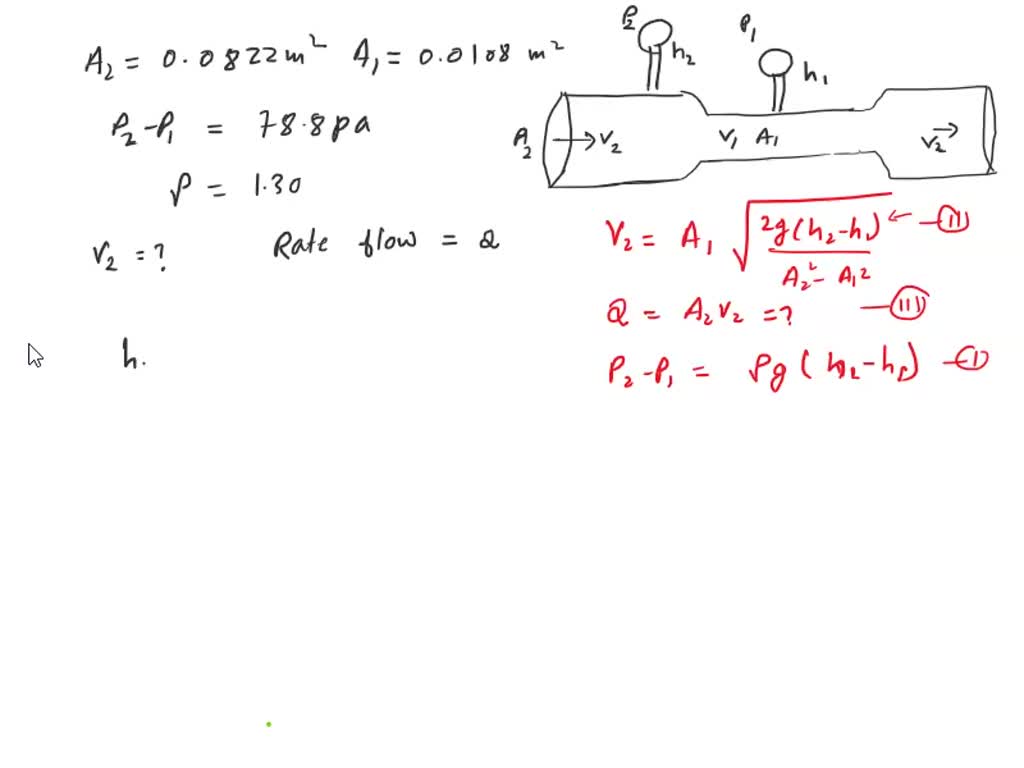 A₂ = 0.0822 m² A₁ = 0.0108 m²
P₂ - P₁ = 78.8 pa
ρ = 1.30
V₂ = ? Rate flow = Q
h.
P₂ h₂ P₁ h₁
A₂ → V₂ V₁ A₁ V₂ →
V₂ = A₁ √(2g(h₂-h₁) / A₂² - A₁²) ← — (II)
Q = A₂ V₂ = ? — (III)
P₂ - P₁ = ρg (h₂ - h₁) — (I)